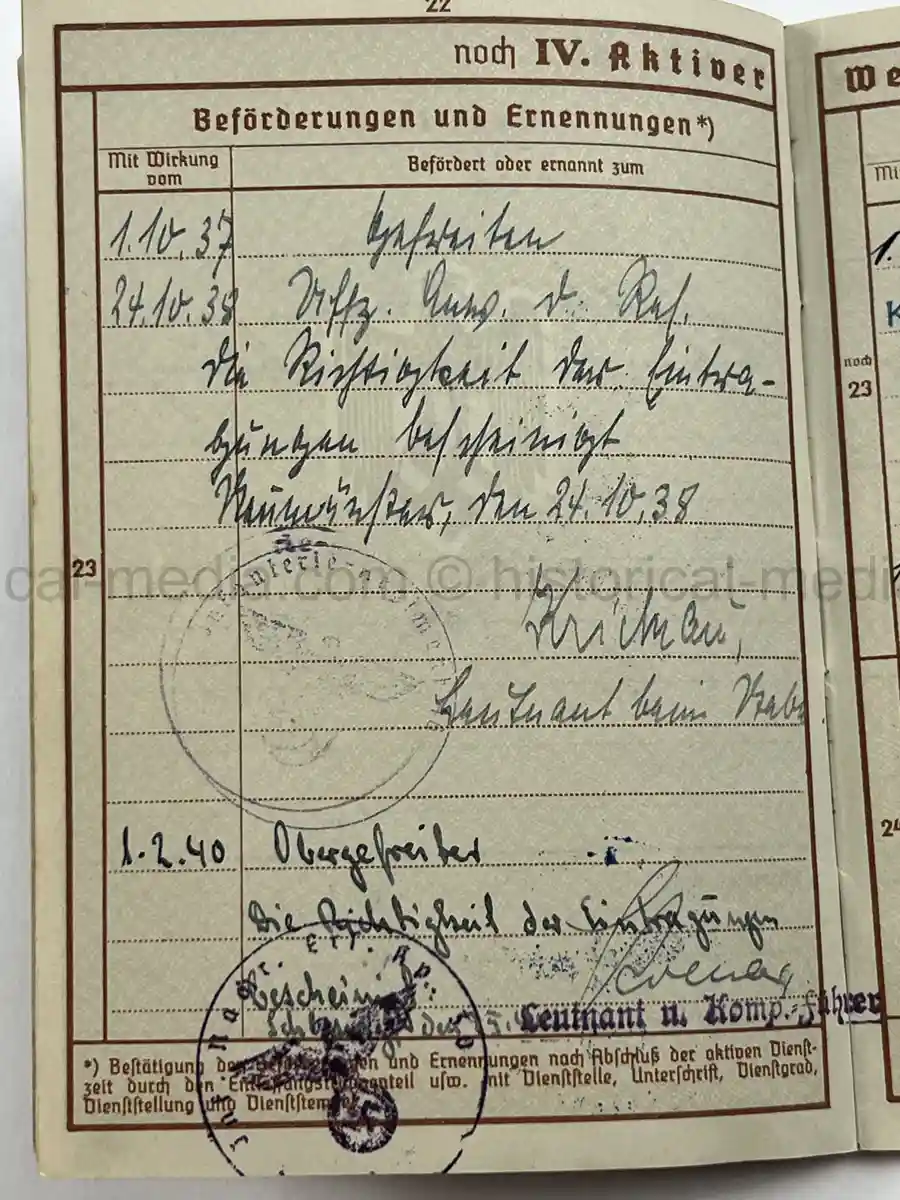 22
noch IV. Aktiver
Beförderungen und Ernennungen*)
Mit Wirkung vom
Befördert oder ernannt zum
1.10.37 Gefreiten
24.10.38 Uffz. Anw. d. Res.
Die Richtigkeit der Eintra-
gungen bescheinigt
Neumünster, den 24.10.38
23
cal-media.com © historical-medi
Infanterie-Regiment
Leutnant beim Stabe
1.2.40 Obergefreiter
Die Richtigkeit der Eintragungen
bescheinigt:
Leutnant u. Komp.-Führer
Inf. Nachr. Ers. Kp.
*) Bestätigung der Beförderungen und Ernennungen nach Abschluß der aktiven Dienst-
zeit durch den Entlassungstruppenteil usw. mit Dienststelle, Unterschrift, Dienstgrad,
Dienststellung und Dienststempel.
We
Mi
1.
K
noch
23
24